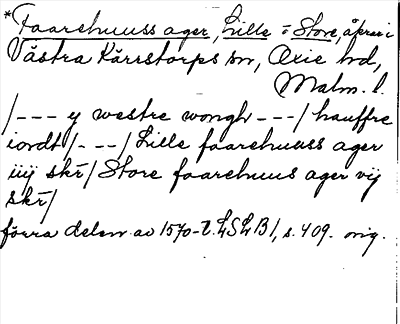 *Faarehuuss ager, Lille = Store, åpris i
Västra Kärrstorps sn, Oxie hd,
Malm. l.
/--- y westre wongh ---/ hauffre
iordt/---/ Lille faarehuuss ager
iiij skr̄/ Store faarehuus ager vij
skr̄/
förra delen av 1570-t. LSLB1, s. 409. orig.